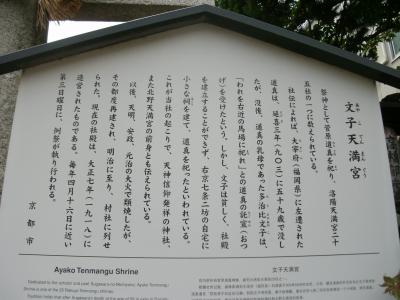 文子天満宮
あやこてんまんぐう
祭神として菅原道真を祀り、洛陽天満宮二十
五社の一つに数えられている。
社伝によれば、大宰府(福岡県)に左遷された
道真は、延喜三年(九〇三)に五十九歳で没し
たが、没後、道真の乳母であった多治比文子は、
「われを右近の馬場に祀れ」との道真の託宣(おつ
げ)を受けたという。しかし、文子は貧しく、社殿
を建立することができず、右京七条二坊の自宅に
小さな祠を建て、道真を祀ったといわれている。
これが当社の起こりで、天神信仰発祥の神社、
また北野天満宮の前身とも伝えられている。
以後、天明、安政、元治の大火で類焼したが、
その都度再建され、明治に至り、村社に列せ
られた。現在の社殿は、大正七年(一九一八)に
造営されたものである。毎年四月十六日に近い
第三日曜日に、例祭が執り行われる。
京都市
Ayako Tenmangu Shrine
Dedicated to the scholar and poet Sugawara-no-Michizane, Ayako Tenmangu
Shrine is one of the 25 Rakuyo Tenmangu shrines.
文子天满宫